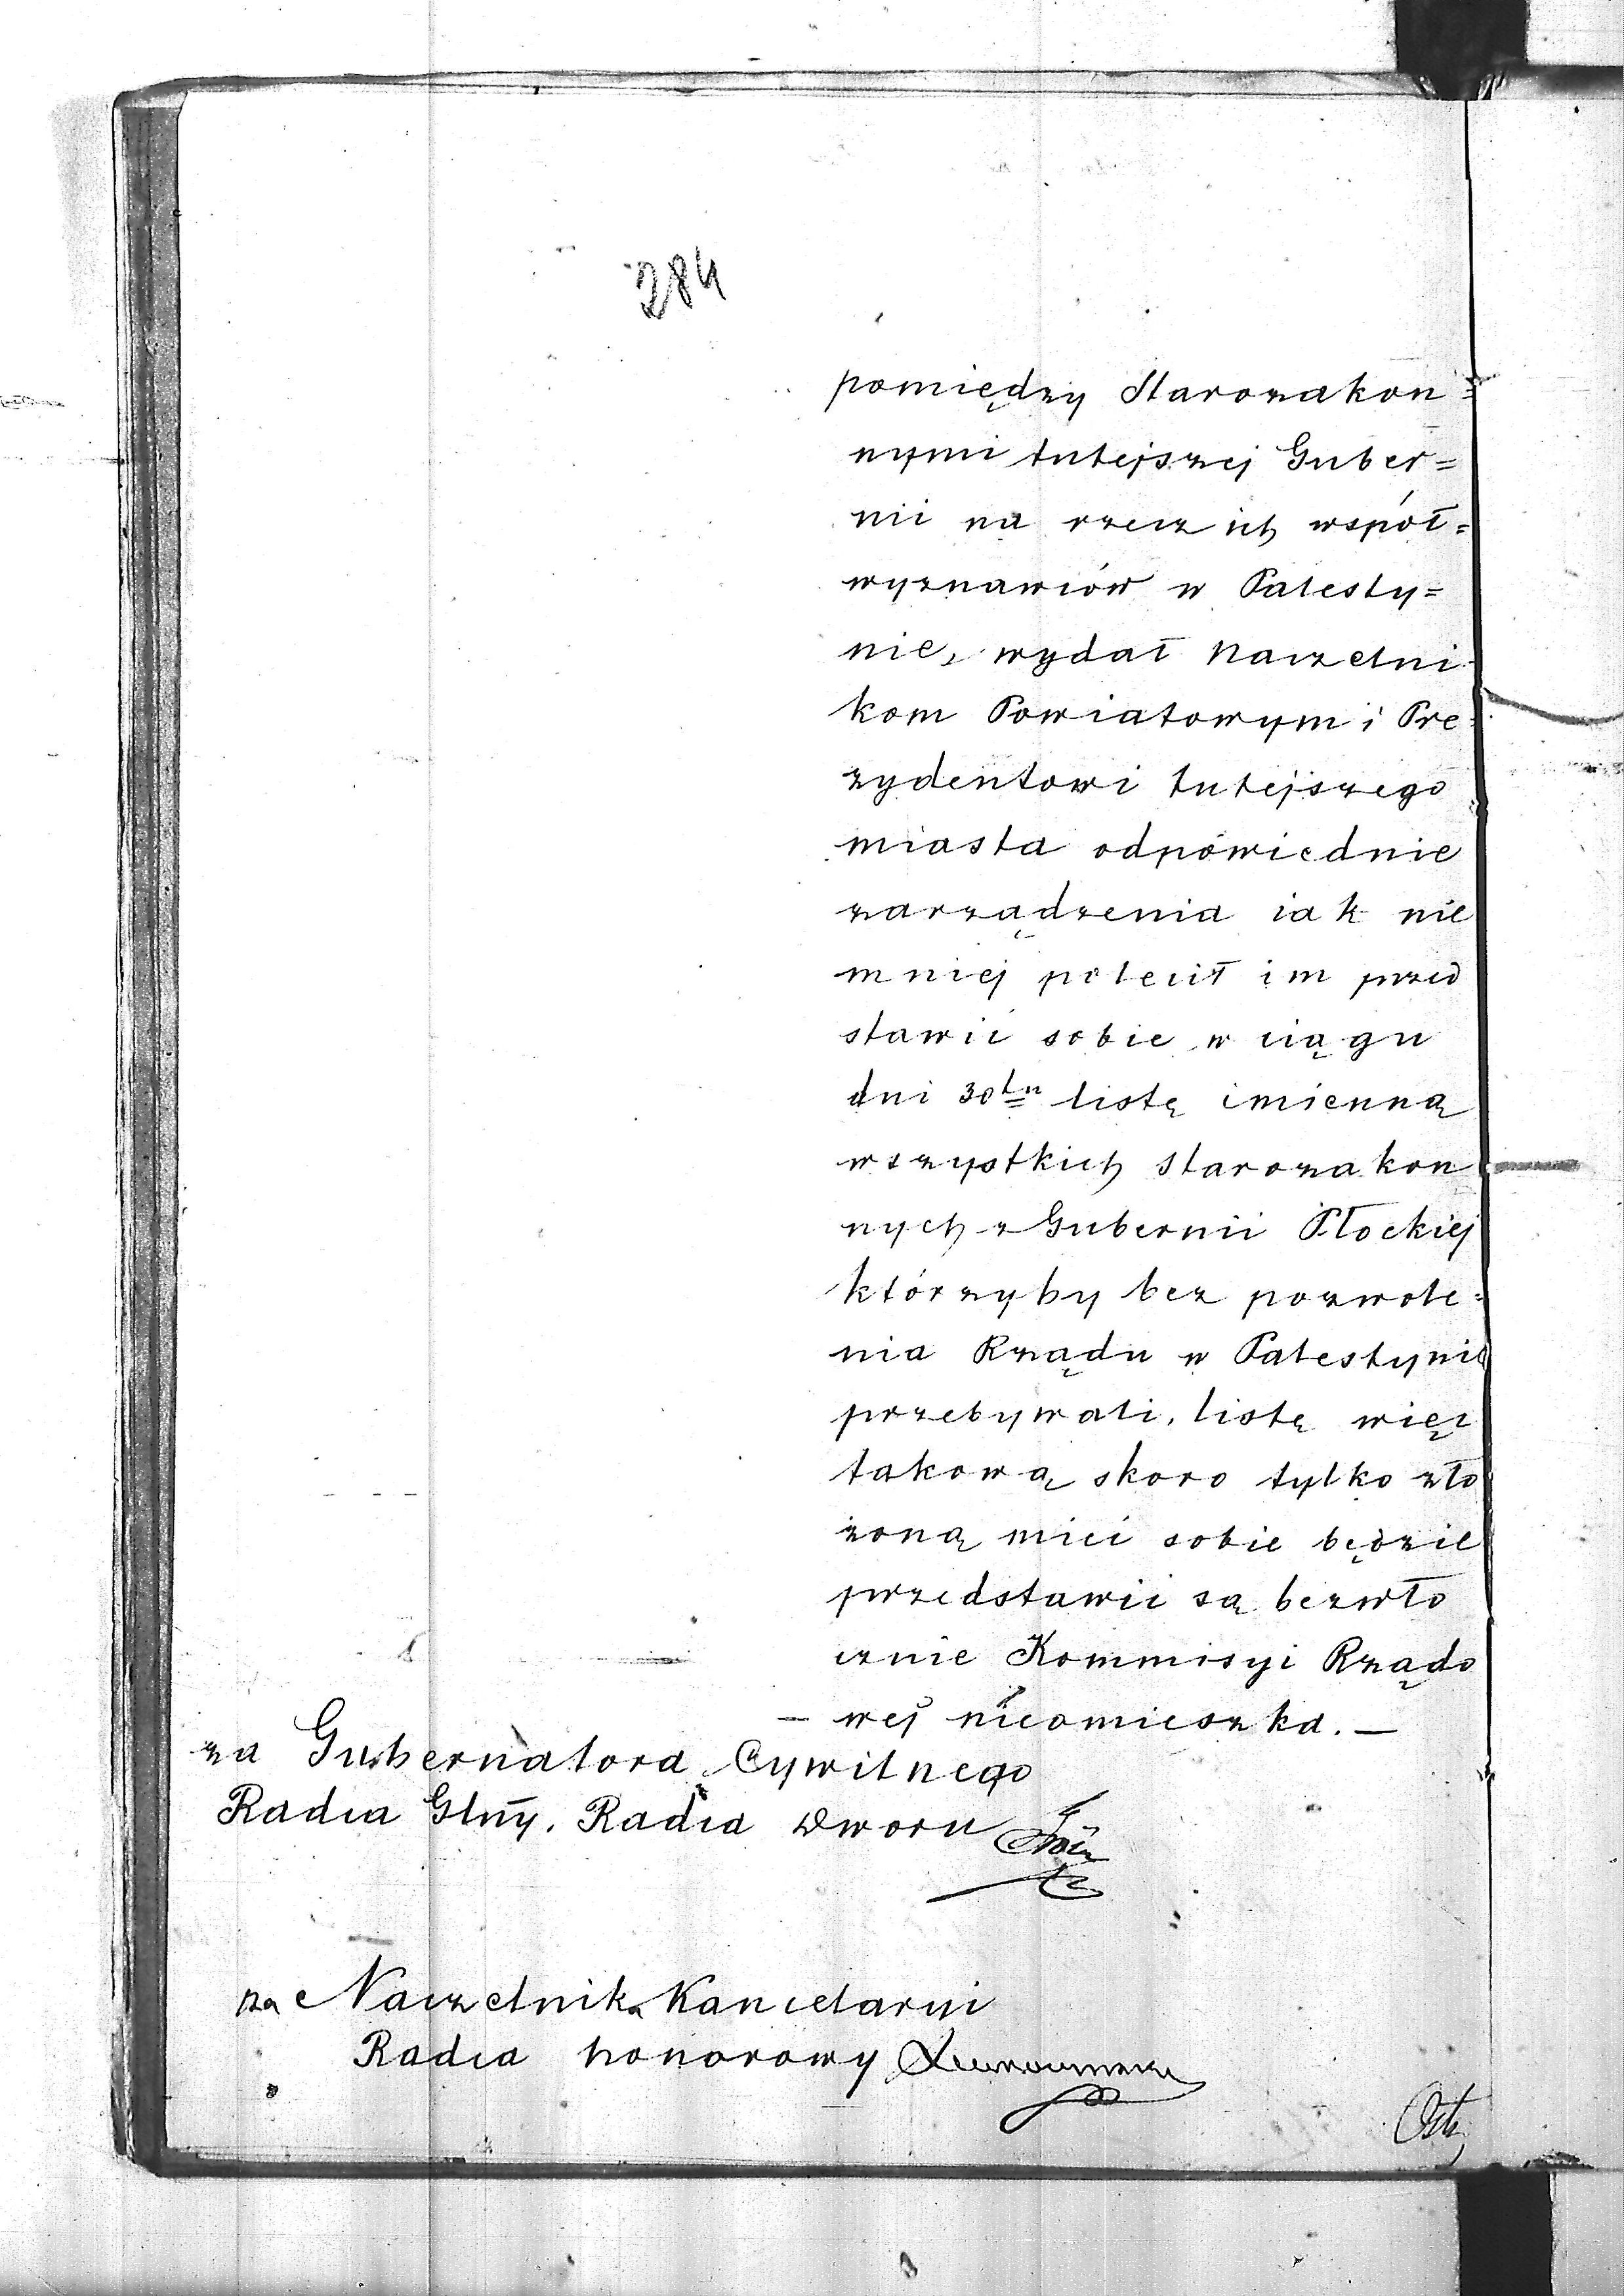 284
pomiędzy Starozakon=
nymi tutejszej Guber=
nii na rzecz ich współ=
wyznawców w Palesty=
nie, wydał Naczelni
kom Powiatowym i Pre=
zydentowi tutejszego
miasta odpowiednie
zarządzenia iak nie
mniej polecił im przed
stawić sobie w ciągu
dni 30tu listę imienną
wszystkich starozakon
nych z Gubernii Płockiej
którzyby bez pozwole=
nia Rządu w Palestynie
przebywali, listę więc
takową skoro tylko zło
żoną mieć sobie będzie
przedstawić są bezwło
cznie Kommisyi Rządo
– wej nieomieszka. –
za Gubernatora Cywilnego
Radca Glny. Radca Dworu
za Naczelnika Kancelaryi
Radca honorowy